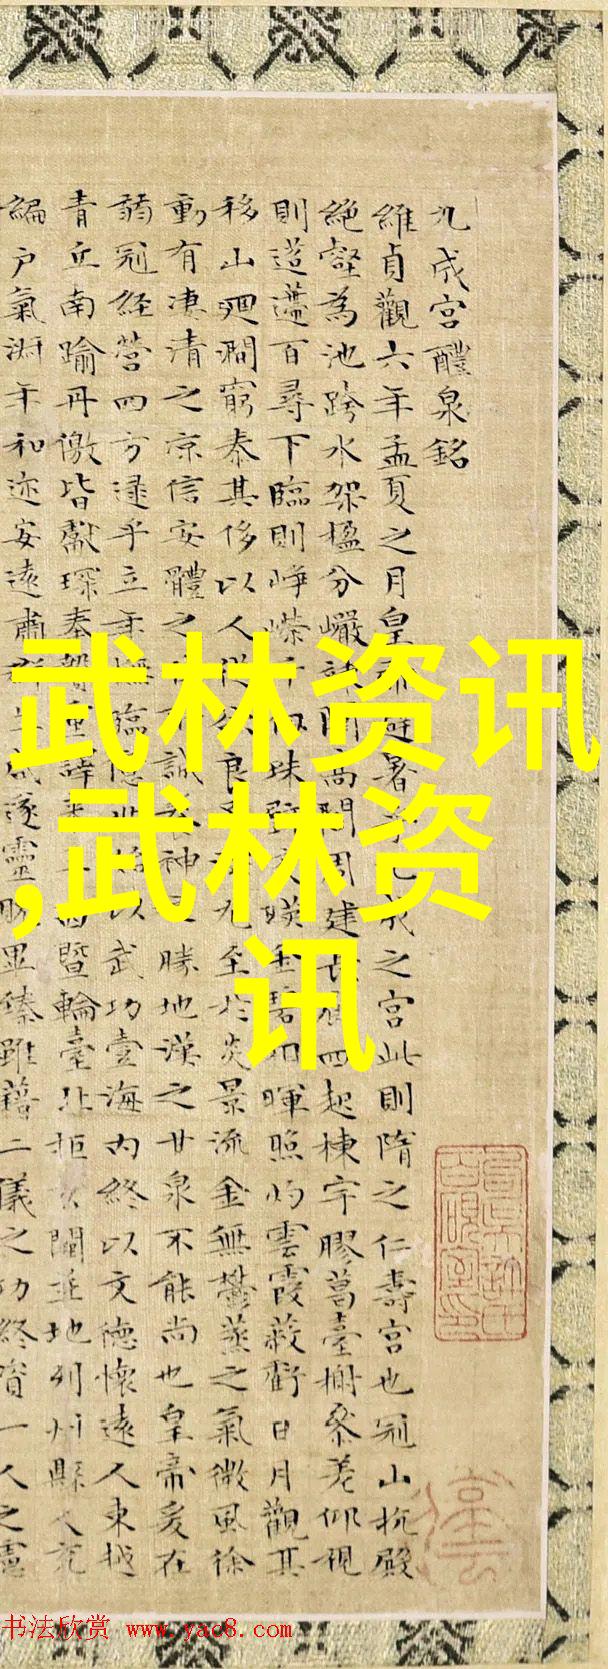 九成宮醴泉銘
維貞觀六年孟夏之月皇帝避暑乎九成之宮此則隋之仁壽宮也冠山抗殿
絕壑為池跨水架楹分巖竦闕高閣周建長廊四起棟宇膠葛臺榭參差仰視
則迢遰百尋下臨則崢嶸千仞珠璧交暎金碧相暉照灼雲霞蔽虧日月觀其
移山迴澗窮泰其侈以人從欲良足深尤至於炎景流金無鬱蒸之氣微風徐
動有淒清之涼信安體之佳所誠養神之勝地漢之甘泉不能尚也皇帝爰在
弱冠經營四方逮乎立年撫臨億兆始以武功壹海內終以文德懷遠人東越
青丘南踰丹徼皆獻琛奉贄重譯來王西暨輪臺北拒玄闕並地列州縣人充
編戶氣淑年和迩安遠肅群生咸遂靈貺畢臻雖藉二儀之功終資一人之慮
武林资讯
,武林资
讯
书法欣赏 www.yac8.com